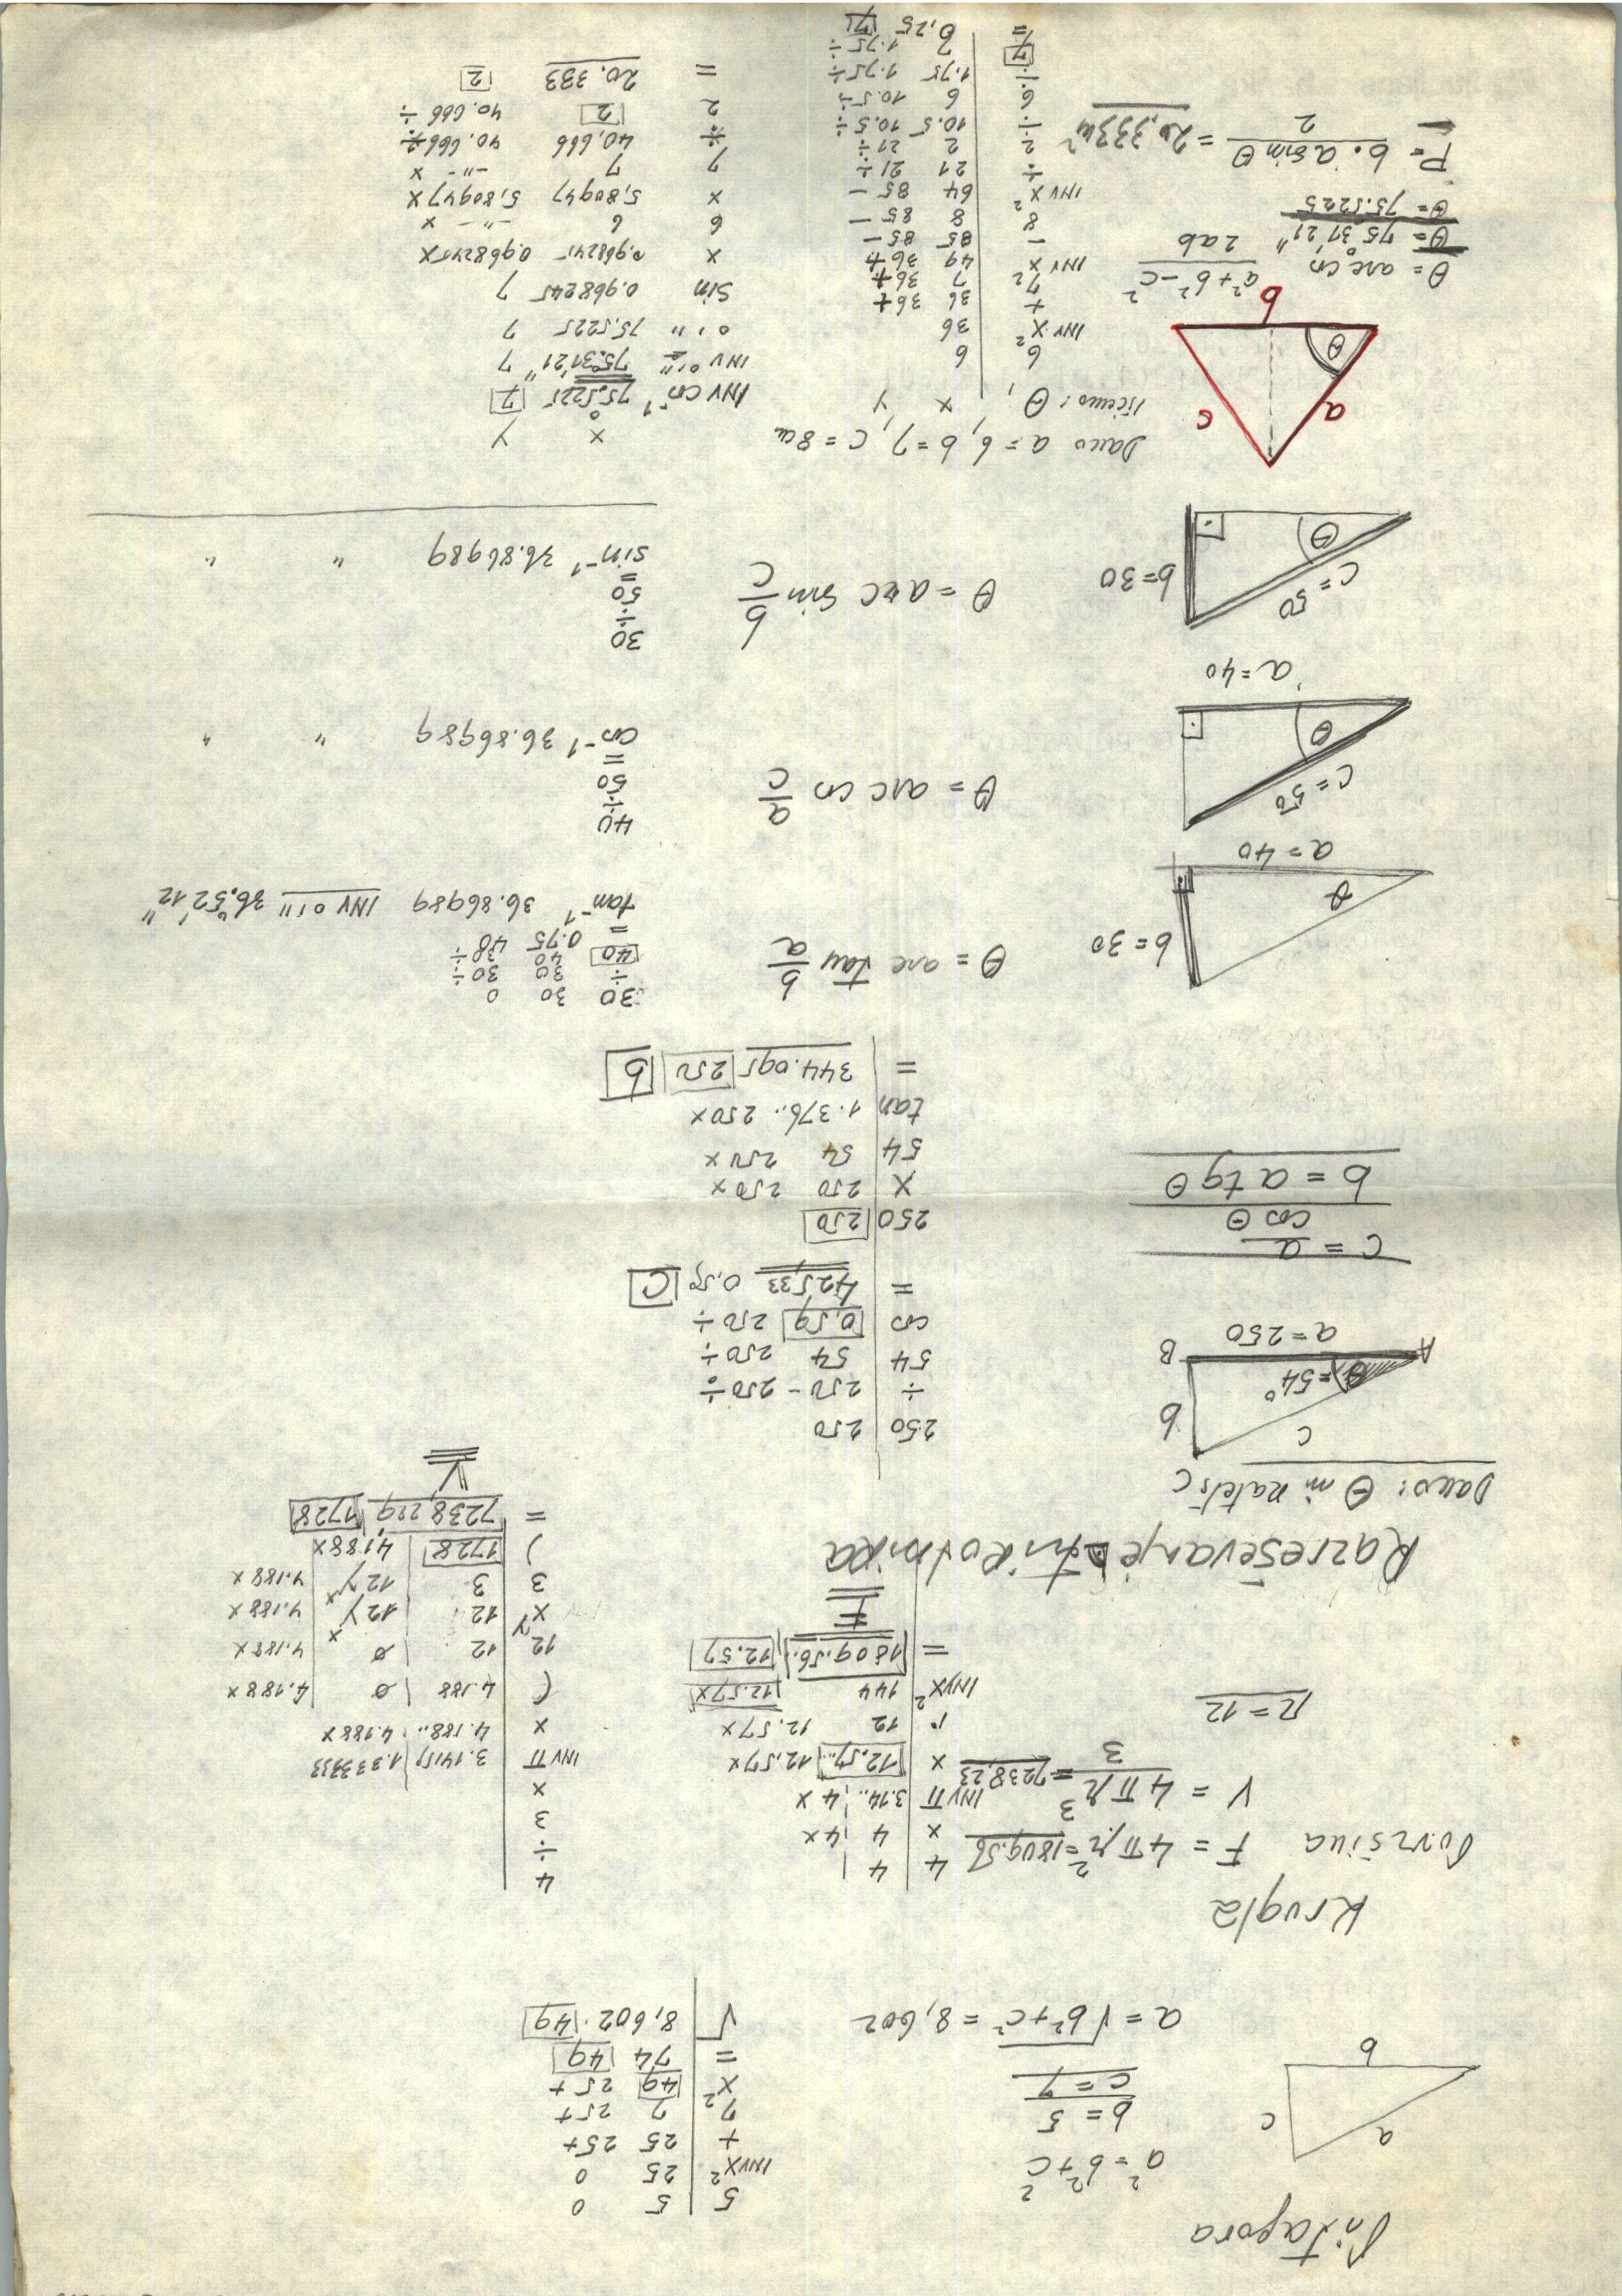 Pitagora
a² = b² + c²
b = 5
c = 7
a = √b²+c² = 8,602
a
c
b
5 5 0
INV X² 25 0
+ 25 25+
7 7 25+
X² 49 25+
= 74 49
√ 8,602. 49
Krugla
Površina F = 4πr² = 1809.56
V = 4πr³/3 = 7238,23
r = 12
4 4
x 4 4x
INV π 3.14.. 4x
x 12.57.. 12.57x
r 12 12.57x
INV X² 144 12.57x
= 1809.56.. 12.57
F
4
÷
3
x
INV π 3.14151 1.333333
x 4.188.. 4.188x
( 4.188 0 4.188x
12 12 0 4.188x
Xʸ 12 12 Yˣ 4.188x
3 3 12 Yˣ 4.188x
) 1728 4.188x
= 7238,229 1728
V
Razreševanje trikotnika
Dano: Θ in katet:
C
c
b
Θ=54°
A
B
a = 250
c = a/cos Θ
b = a tg Θ
250 250
÷ 250 - 250÷
54 54 250÷
cos 0,59 250÷
= 425,33 0,59 C
250 250
x 250 250x
54 54 250x
tan 1.376.. 250x
= 344.095 250 b
b=30
Θ
a=40
Θ = arc tan b/a
30 30 0
÷ 30 30÷
40 40 30÷
= 0.75 40
tan⁻¹ 36.86989 INV 0,,, 36°52'12"
c=50
Θ
a=40
Θ = arc cos a/c
40
÷
50
=
cos⁻¹ 36.86989 " "
c=50
b=30
Θ
Θ = arc sin b/c
30
÷
50
=
sin⁻¹ 36.86989 " "
Dano a = 6, b = 7, c = 8 cm
Iščemo: Θ, x y
a
c
Θ
b
Θ = arc cos a²+b²-c²/2ab
Θ = 75°31'21"
Θ = 75.5225
P = b·a sin Θ/2 = 20,333 m²
6 6
INV X² 36
+ 36 36+
7 7 36+
INV X² 49 36+
- 85 85-
8 8 85-
INV X² 64 85-
÷ 21 21÷
2 2 21÷
÷ 10.5 10.5÷
6 6 10.5÷
÷ 1.75 1.75÷
7 7 1.75÷
= 0,25 7
x y
INV cos⁻¹ 75.5225° 7
INV 0,,, 75°31'21" 7
0,,, 75.5225 7
Sin 0,968245 7
x 0,968245 0,968245x
6 6 -"- x
x 5,80947 5,80947x
7 7 -"- x
÷ 40,666 40.666÷
2 2 40.666÷
= 20,333 2